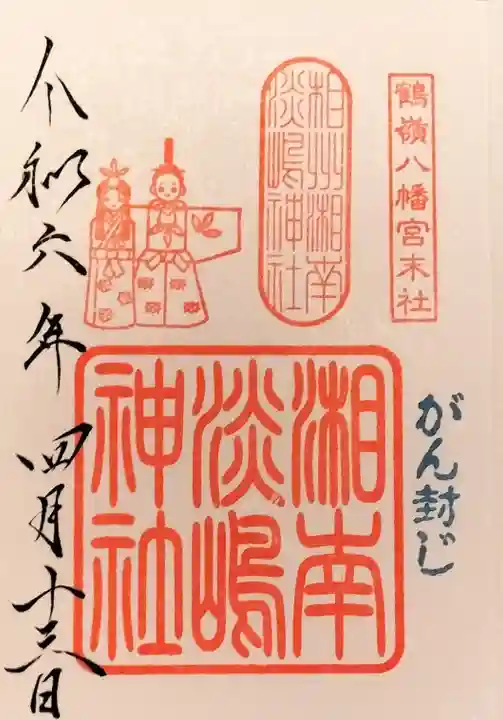 鶴嶺八幡宮末社
相州湘南
淡嶋神社
がん封じ
湘南
淡嶋
神社
令和六年四月十三日